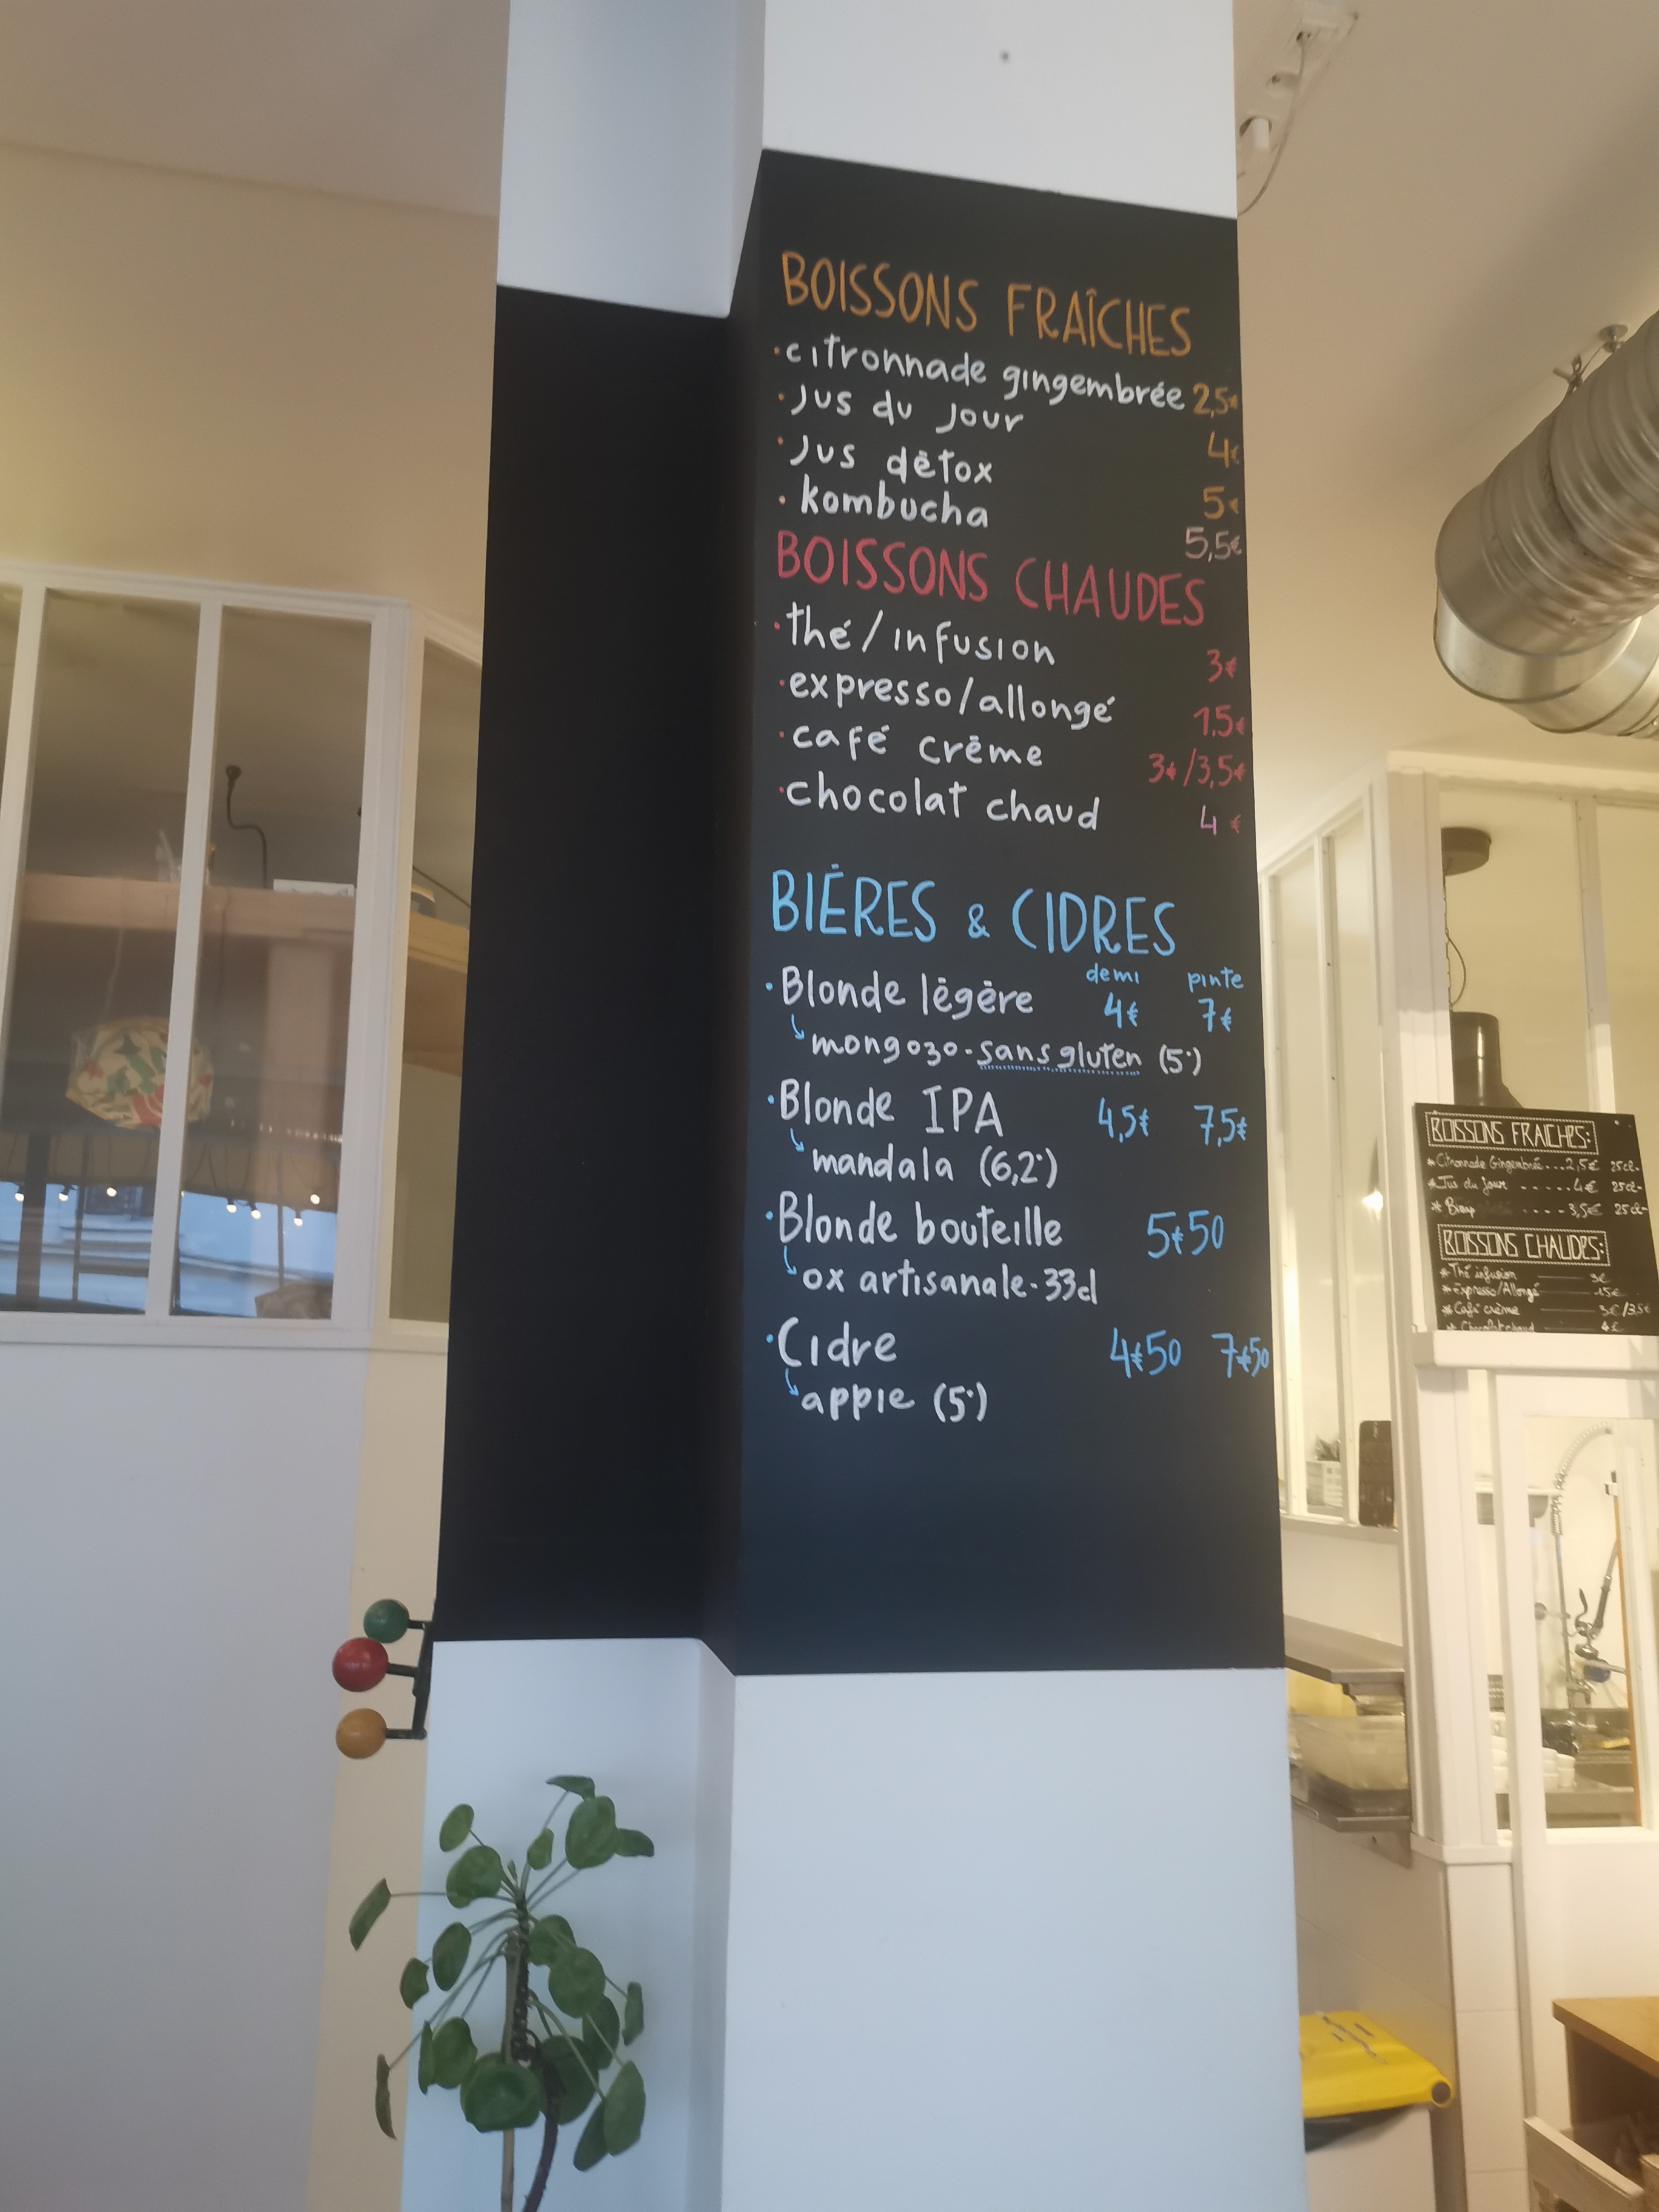 BOISSONS FRAÎCHES
· citronnade gingembrée 2,5€
· Jus du jour 4€
· Jus détox 5€
· kombucha 5,5€
BOISSONS CHAUDES
· thé/infusion 3€
· expresso/allongé 1,5€
· café crème 3€/3,5€
· chocolat chaud 4€
BIÈRES & CIDRES
demi pinte
· Blonde légère 4€ 7€
mongozo - sans gluten (5°)
· Blonde IPA 4,5€ 7,5€
mandala (6,2°)
· Blonde bouteille 5€50
ox artisanale - 33cl
· Cidre 4€50 7€50
appie (5°)
BOISSONS FRAICHES:
* Citronnade Gingembrée...2,5€ 25cl-
* Jus du Jour -----4€ 25cl-
* Bissap ----3,5€ 25cl-
BOISSONS CHAUDES:
* Thé infusion 3€
* Expresso/Allongé 1,5€
* Café crème 3€/3,5€
* Chocolat chaud 4€